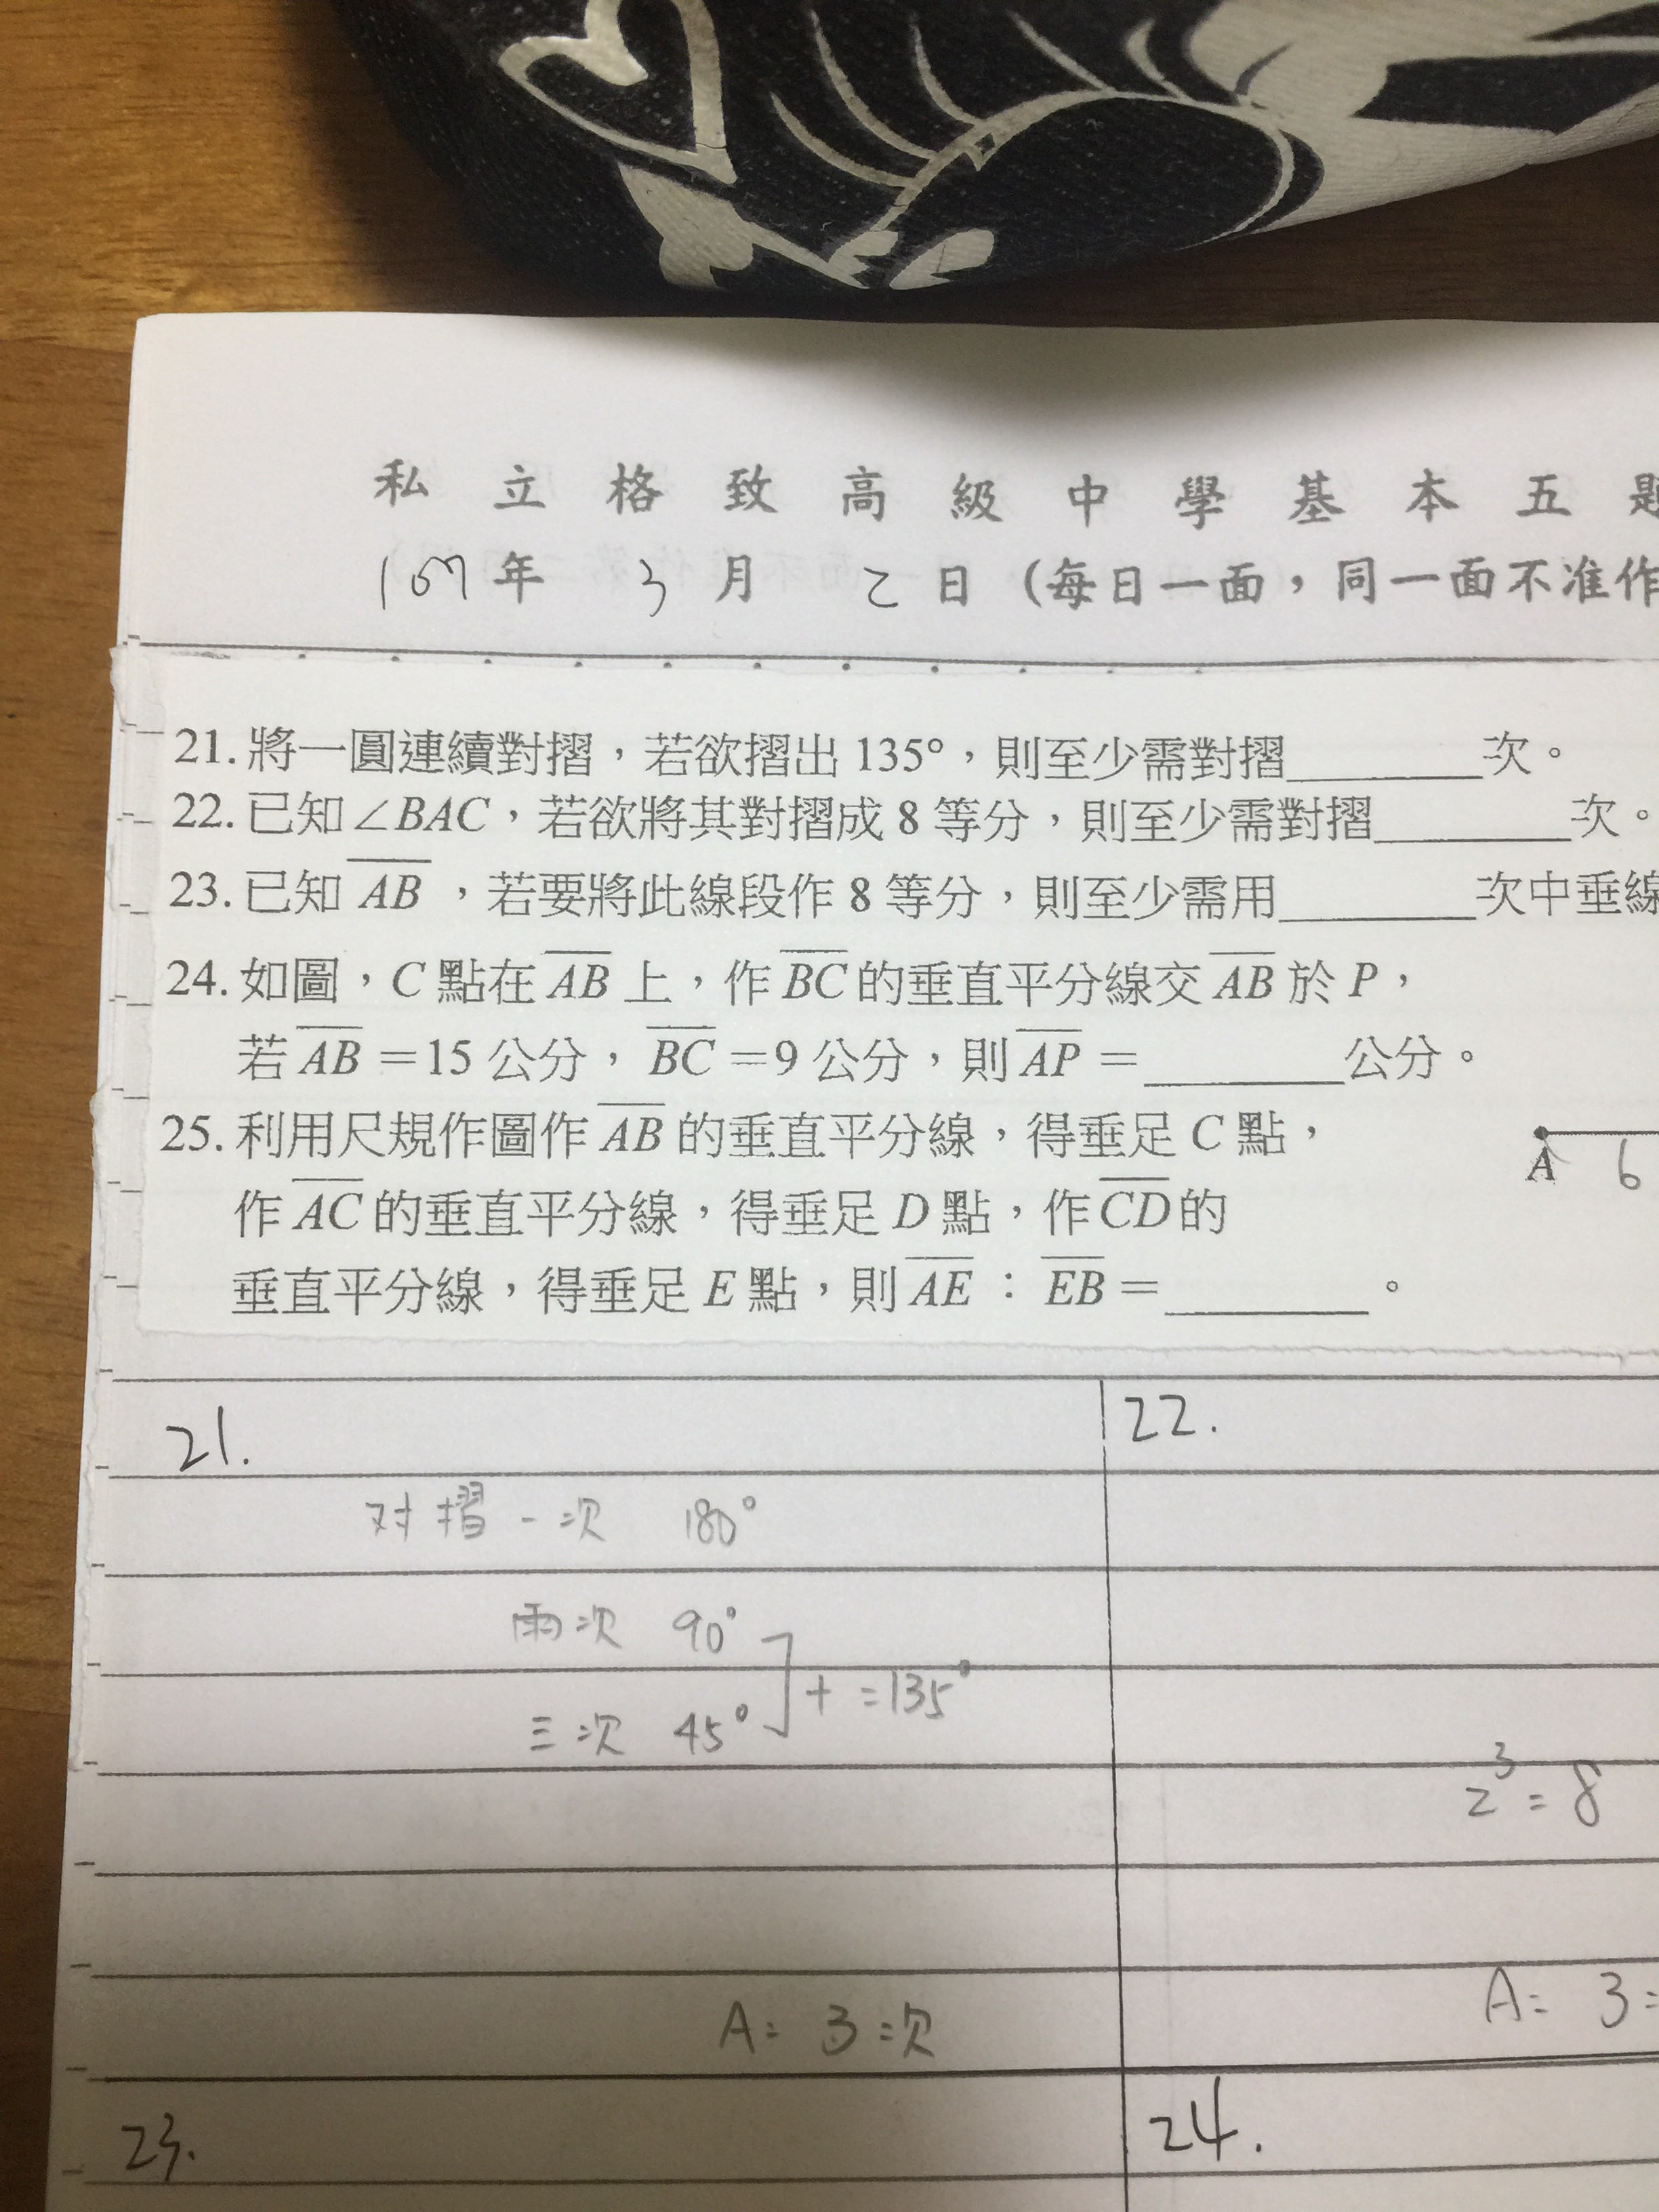 私立格致高級中學基本五題
107年 3月 2日（每日一面，同一面不准作
21. 將一圓連續對摺，若欲摺出 135°，則至少需對摺________次。
22. 已知∠BAC，若欲將其對摺成 8 等分，則至少需對摺________次。
23. 已知 AB ，若要將此線段作 8 等分，則至少需用________次中垂線
24. 如圖，C 點在 AB 上，作 BC 的垂直平分線交 AB 於 P，
若 AB ＝15 公分， BC ＝9 公分，則 AP ＝________公分。
25. 利用尺規作圖作 AB 的垂直平分線，得垂足 C 點，
作 AC 的垂直平分線，得垂足 D 點，作 CD 的
垂直平分線，得垂足 E 點，則 AE ： EB ＝________。
A 6
21.
对摺一次 180°
兩次 90°
三次 45°
+ =135°
A= 3次
22.
2³ = 8
A= 3
23.
24.